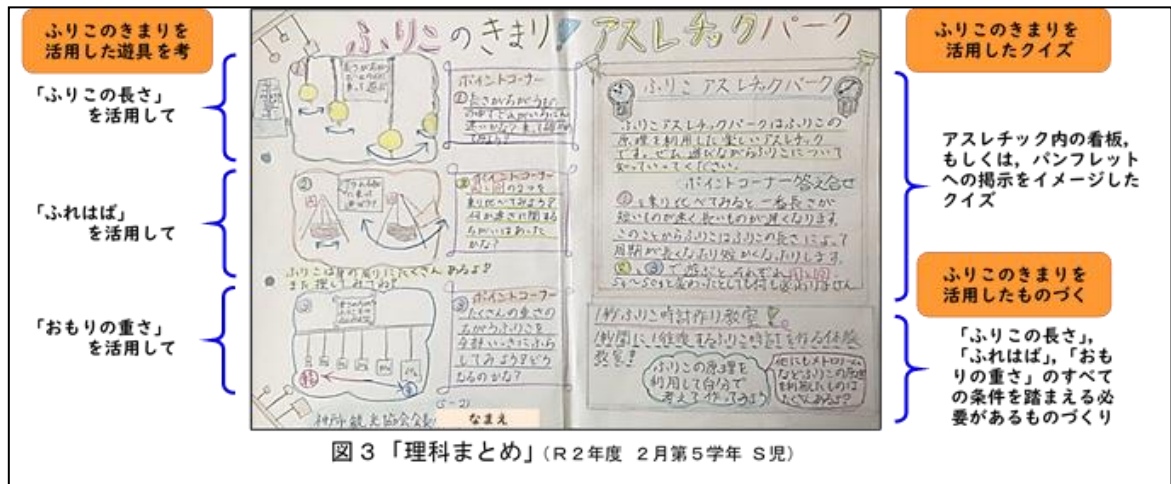 ふりこのきまりを
活用した遊具を考
「ふりこの長さ」
を活用して
「ふれはば」
を活用して
「おもりの重さ」
を活用して
ふりこのきまり! アスレチックパーク
ポイントコーナー
ポイントコーナー
①と②の2つを
乗り比べてみよう?
何か速さに関する
ちがいはあった
かな?
ふりこは身の周りにたくさんあるよ?
また探してみてね?
ポイントコーナー
たくさんの重さの
ちがうふりこを
してみよう?どう
なるのかな?
なまえ
ふりこ アスレチックパーク
ふりこアスレチックパークはふりこの
原理を利用した楽しいアスレチック
です。ぜひ、遊びながらふりこについて
知っていってください。
ポイントコーナー答え合せ
①を乗り比べてみると一番長さが
短いものが速く長いものが遅くなります。
このことからふりこはふりこの長さによって
周期が長くなったり短かくなったりします。
1秒ふりこ時計作り教室!
1秒間に1往復するふりこ時計を作る体験
教室!
ふりこの原理を
利用して自分で
考えて作ってみよう
他にもメトロノーム
などふりこの原理
を利用したものは
たくさんあるよ?
ふりこのきまりを
活用したクイズ
アスレチック内の看板,
もしくは,パンフレット
への掲示をイメージした
クイズ
ふりこのきまりを
活用したものづく
「ふりこの長さ」,
「ふれはば」,「おも
りの重さ」のすべて
の条件を踏まえる必
要があるものづくり
図3「理科まとめ」(R2年度 2月第5学年 S児)